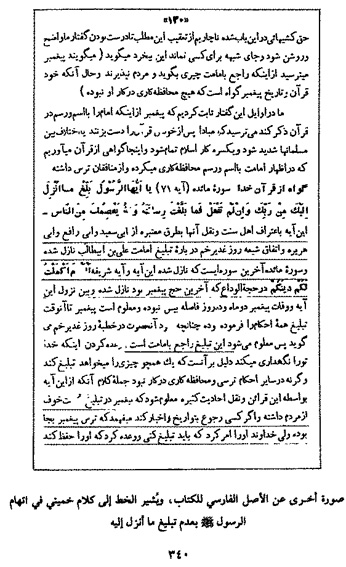 «۱۳۰»
حق کشیهائی در این باب شده ناچاریم از تعقیب این مطلب تا درست بودن گفتار ما واضح
روشن شود و جای شبهه برای کسی نماند این بیخرد میگوید (میگویند پیغمبر
میترسید از اینکه راجع بامامت چیزی بگوید و مردم نپذیرند و حال آنکه خود
قرآن و تاریخ پیغمبر گواه است که هیچ محافظه کاری در کار او نبوده)
ما در اوایل این گفتار ثابت کردیم که پیغمبر از اینکه امام را با اسم و رسم در
قرآن ذکر کند می ترسید که مبادا پس از خودش قرآن را دست بزنند یا اختلاف بین
مسلمانها شدید شود و یکسره کار اسلام تمام شود و اینجا گواهی از قرآن میآوریم
که در اظهار امامت با اسم و رسم محافظه کاری میکرده و از منافقان ترس داشته
گواه از قرآن خدا سورة مائده (آیه ۷۱) یا أیها الرسول بلغ ما انزل
إلیک من ربک وإن لم تفعل فما بلغت رسالته والله یعصمک من الناس ـ
این آیه باعتراف اهل سنت و نقل آنها بطرق معتبره از ابی سعید و ابی رافع و ابی
هریره و اتفاق شیعه روز غدیر خم در بارۀ تبلیغ امامت علی بن ابیطالب نازل شده
و سورۀ مائده آخرین سوره ایست که نازل شده این آیه و آیه شریفه الیوم اکملت
لکم دینکم در حجة الوداع که آخرین حج پیغمبر بود نازل شده و بین نزول این
آیه و وفات پیغمبر دو ماه و ده روز فاصله بیش نبوده و معلوم است پیغمبر تا آنوقت
تبلیغ همۀ احکام را فرموده بوده چنانچه خود آنحضرت در خطبۀ روز غدیر خم می
گوید پس معلوم می شود این تبلیغ راجع بامامت است وعده کردن اینکه خدا
تو را نگهداری میکند دلیل بر آنست که یک همچو چیزی را میخواهد تبلیغ کند
و گرنه در سایر احکام ترسی و محافظه کاری در کار نبود جملۀ کلام آنکه از این آیه
بواسطه این قرائن و نقل احادیث کثیره معلوم شود که پیغمبر در تبلیغ خوف
از مردم داشته و اگر کسی رجوع بتواریخ و اخبار کند میفهمد که ترس پیغمبر بجا
بوده ولی خداوند او را امر کرد که باید تبلیغ کنی و وعده کرد که او را حفظ کند
صورة أخرى عن الأصل الفارسي للكتاب، ويُشير الخط إلى كلام خميني في اتهام
الرسول ﷺ بعدم تبليغ ما أنزل إليه
٣٤٠